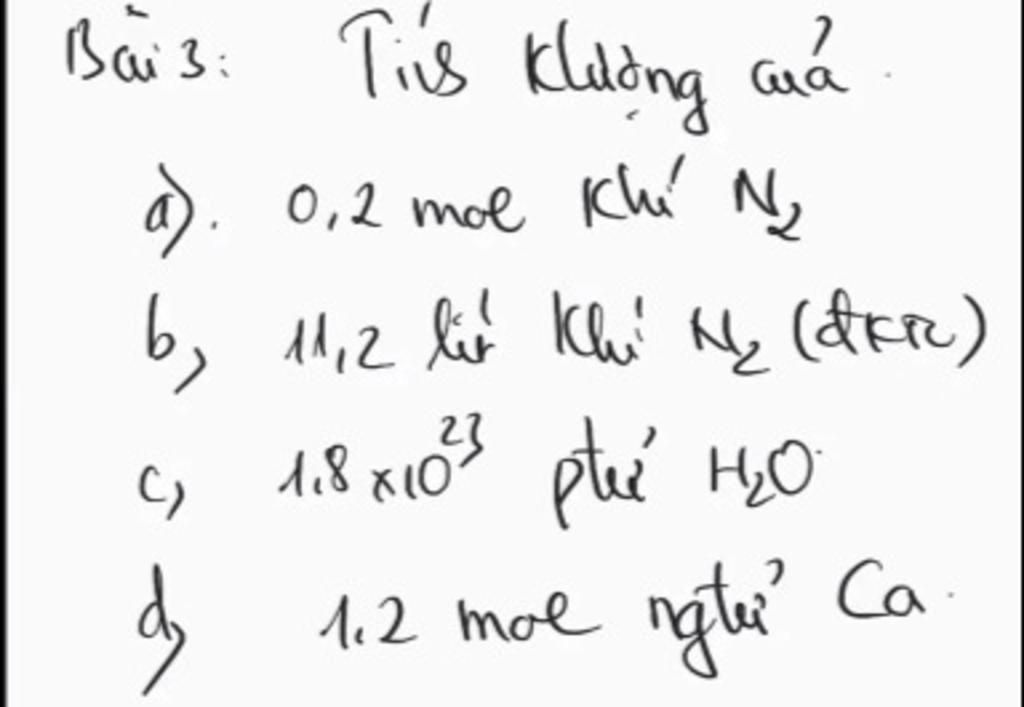 Bài 3: Tính klượng của
a). 0,2 mol khí N₂
b, 11,2 lít khí N₂ (đktc)
c, 1,8 x10²³ ptử H₂O
d, 1,2 mol ngtử Ca